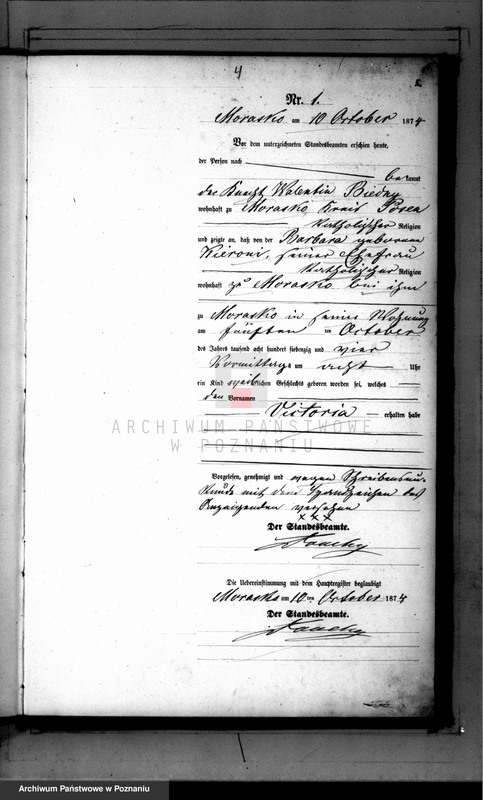 4
Nr. 1.
Morasko am 10 October 1874
Vor dem unterzeichneten Standesbeamten erschien heute,
der Person nach bekannt
der Knecht Valentin Biedny
wohnhaft zu Morasko Kreis Posen
katholischer Religion
und zeigte an, daß von der Barbara geborenen
seiner Ehefrau
katholischer Religion
wohnhaft zu Morasko bei ihm
zu Morasko in seiner Wohnung
am fünften im October
des Jahres tausend acht hundert siebenzig und vier
Vormittags um acht Uhr
ein Kind weiblichen Geschlechts geboren worden sei, welches
den Vornamen
Victoria erhalten habe
ARCHIWUM PAŃSTWOWE
W POZNANIU
Vorgelesen, genehmigt und wegen Schreibensun-
kunde mit dem Handzeichen des
Anzeigenden versehen
x x x
Der Standesbeamte.
Die Uebereinstimmung mit dem Hauptregister beglaubigt
Morasko am 10ten October 1874
Der Standesbeamte.
Archiwum Państwowe w Poznaniu